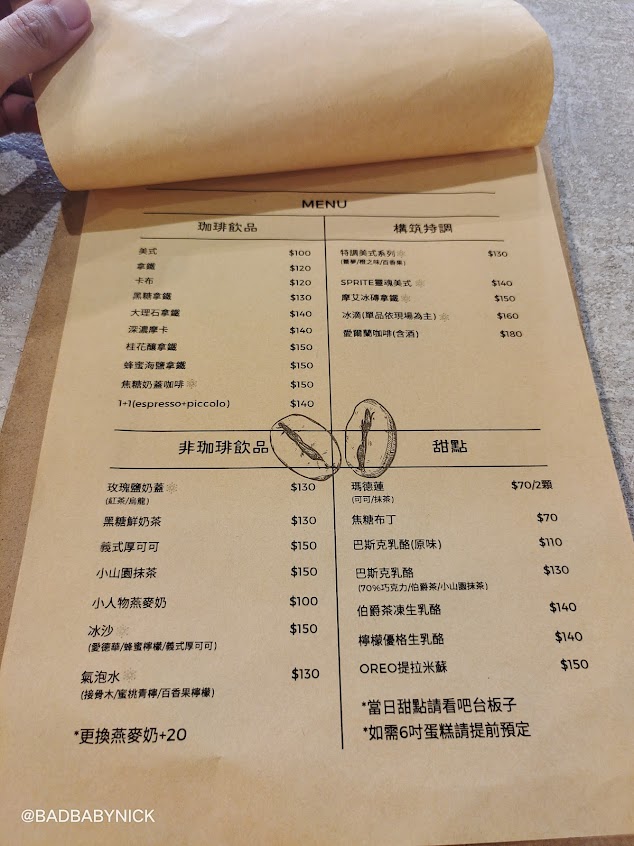 MENU
珈琲飲品
美式 $100
拿鐵 $120
卡布 $120
黑糖拿鐵 $130
大理石拿鐵 $140
深濃摩卡 $140
桂花釀拿鐵 $150
蜂蜜海鹽拿鐵 $150
焦糖奶蓋咖啡 $150
1+1(espresso+piccolo) $140
構筑特調
特調美式系列 $130
(蔓夢/橙之味/百香果)
SPRITE靈魂美式 $140
摩艾冰磚拿鐵 $150
冰滴(單品依現場為主) $160
愛爾蘭咖啡(含酒) $180
非珈琲飲品
玫瑰鹽奶蓋 $130
(紅茶/烏龍)
黑糖鮮奶茶 $130
義式厚可可 $150
小山園抹茶 $150
小人物燕麥奶 $100
冰沙 $150
(愛德華/蜂蜜檸檬/義式厚可可)
氣泡水 $130
(接骨木/蜜桃青檸/百香果檸檬)
*更換燕麥奶+20
甜點
瑪德蓮 $70/2顆
(可可/抹茶)
焦糖布丁 $70
巴斯克乳酪(原味) $110
巴斯克乳酪 $130
(70%巧克力/伯爵茶/小山園抹茶)
伯爵茶凍生乳酪 $140
檸檬優格生乳酪 $140
OREO提拉米蘇 $150
*當日甜點請看吧台板子
*如需6吋蛋糕請提前預定
@BADBABYNICK